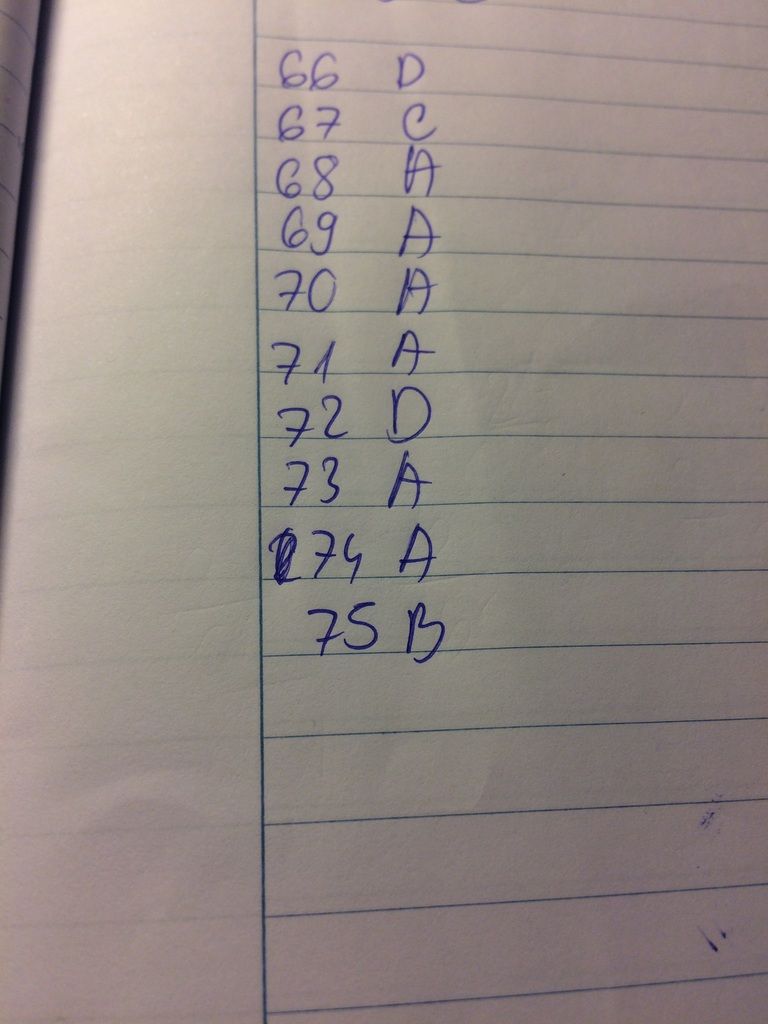 66 D
67 C
68 A
69 A
70 A
71 A
72 D
73 A
74 A
75 B